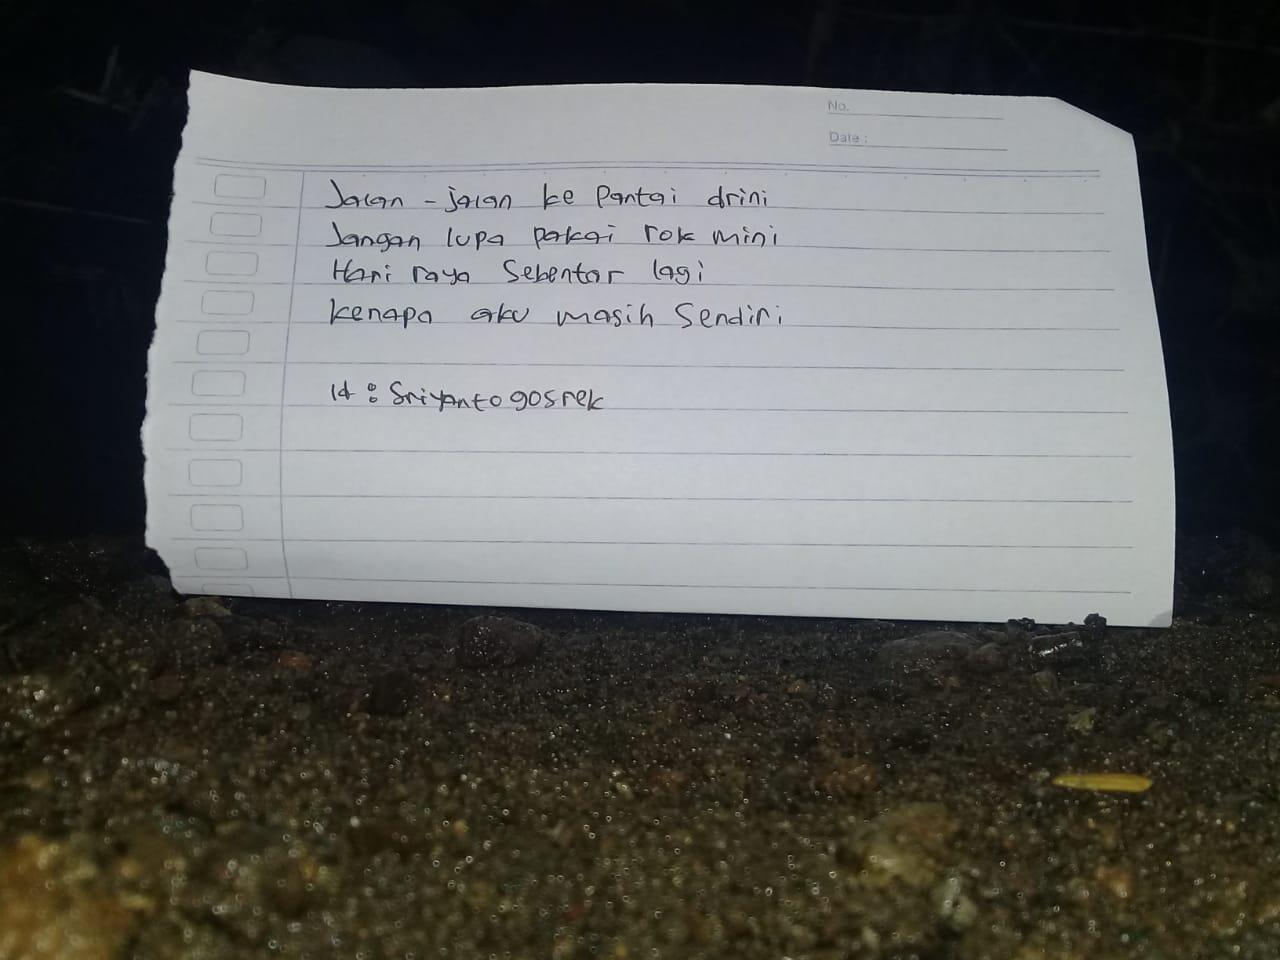 No.
Date :
Jalan - jalan ke Pantai drini
Jangan lupa pakai rok mini
Hari raya Sebentar lagi
kenapa aku masih Sendiri
Id : Sriyanto gosrek